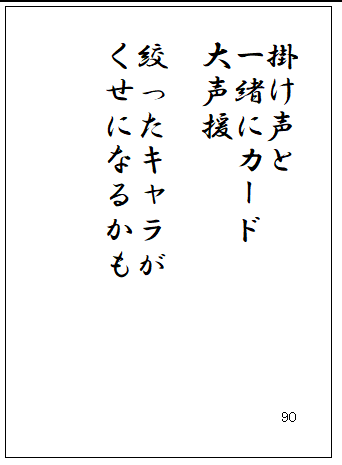 掛け声と
一緒にカード
大声援
絞ったキャラが
くせになるかも
90